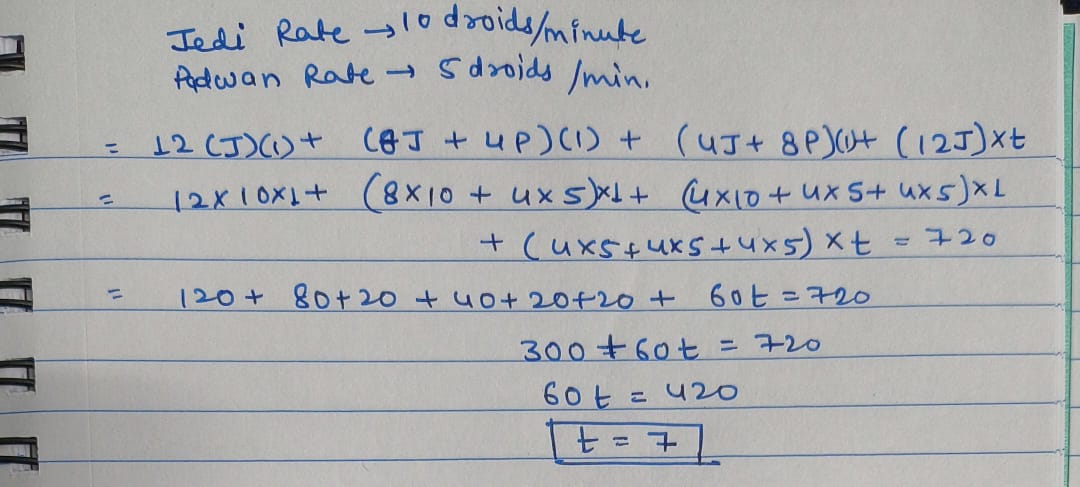 Jedi Rate → 10 droids/minute
Padwan Rate → 5 droids /min.
= 12 (J)(1) + (8J + 4P)(1) + (4J + 8P)(1)+ (12J)×t
= 12×10×1 + (8×10 + 4×5)×1 + (4×10 + 4×5 + 4×5)×1
+ (4×5+4×5+4×5) ×t = 720
= 120 + 80+20 + 40+20+20 + 60t = 720
300 + 60t = 720
60t = 420
t = 7